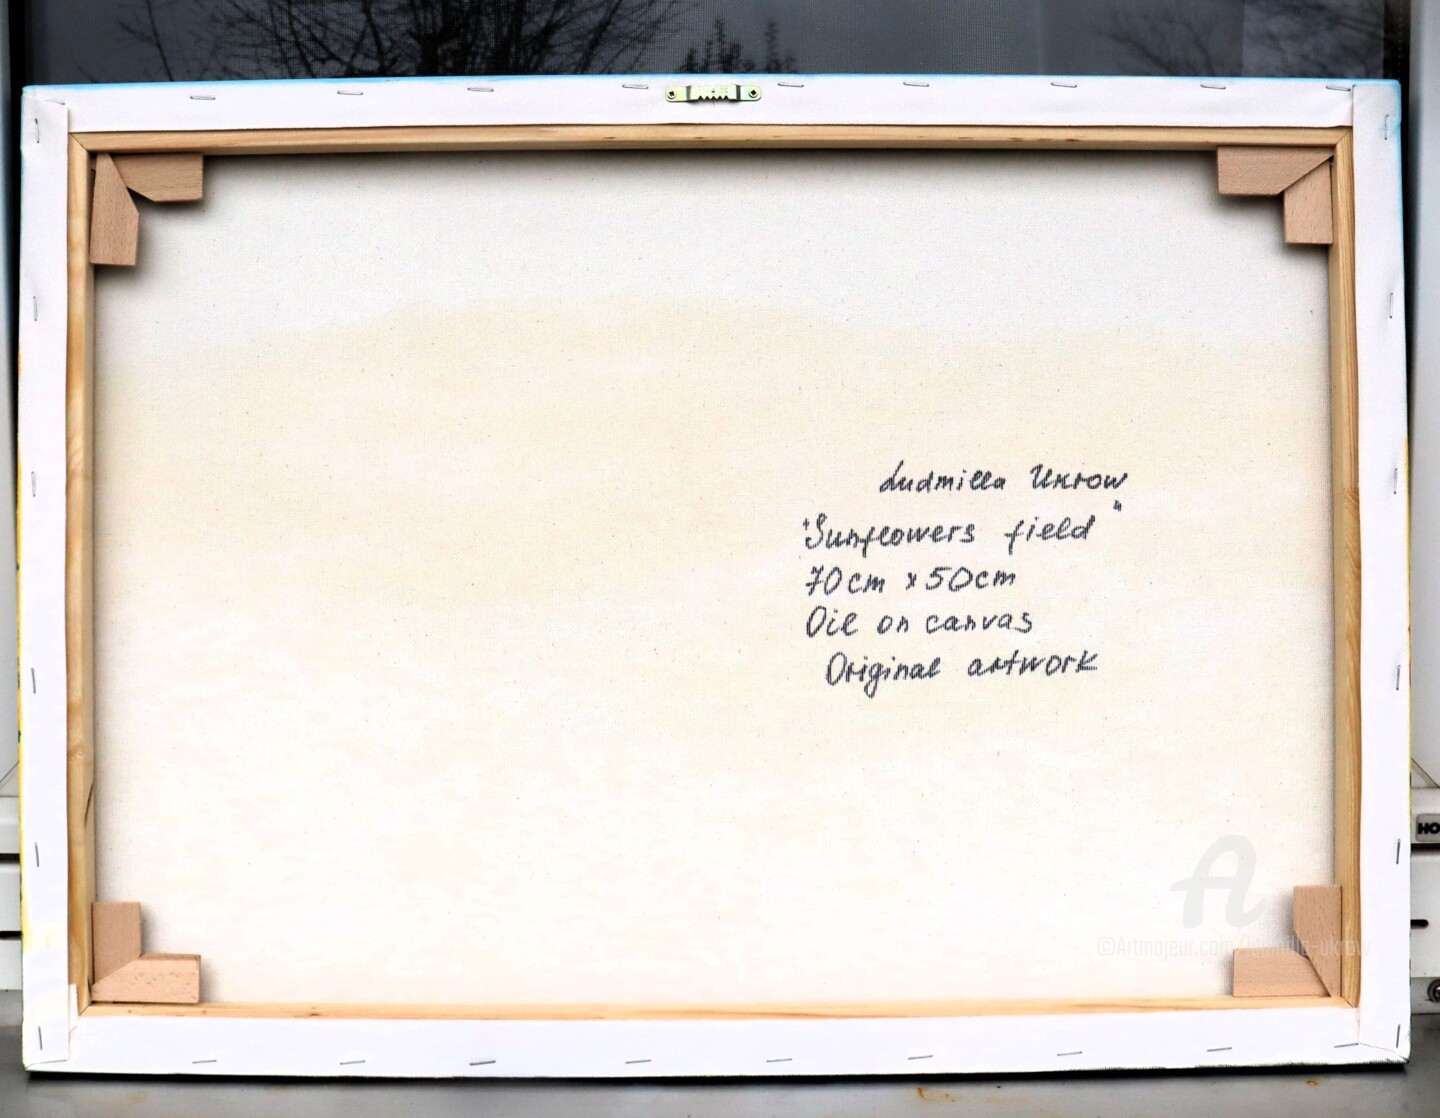 Ludmilla Ukrow
"Sunflowers field"
70cm x 50cm
Oil on canvas
Original artwork
HO
A
©Artmajeur.com/ludmilla-ukrow